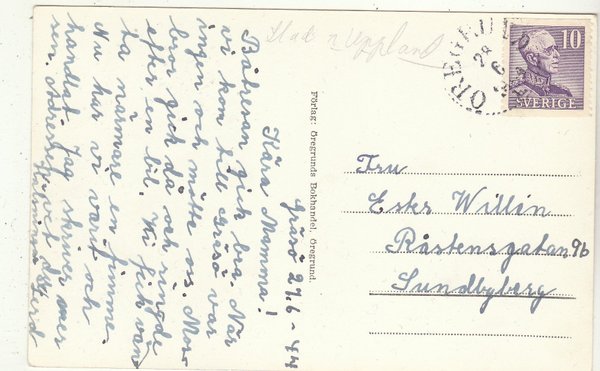 Stad i Uppland
ÖREGRUND
28
6
10
SVERIGE
Förlag: Öregrunds Bokhandel, Öregrund.
Gräsö 27.6-44
Kära Mamma!
Båtresan gick bra. När
vi kom till Gräsö var
ingen och mötte oss. Mor-
bror gick då och ringde
efter en bil. Vi fick vän-
ta närmare en timme.
Nu har vi varit och
handlat. Jag skriver mer
sen. Adressen vet du
Gerd
Fru
Ester Willin
Råstensgatan 9b
Sundbyberg